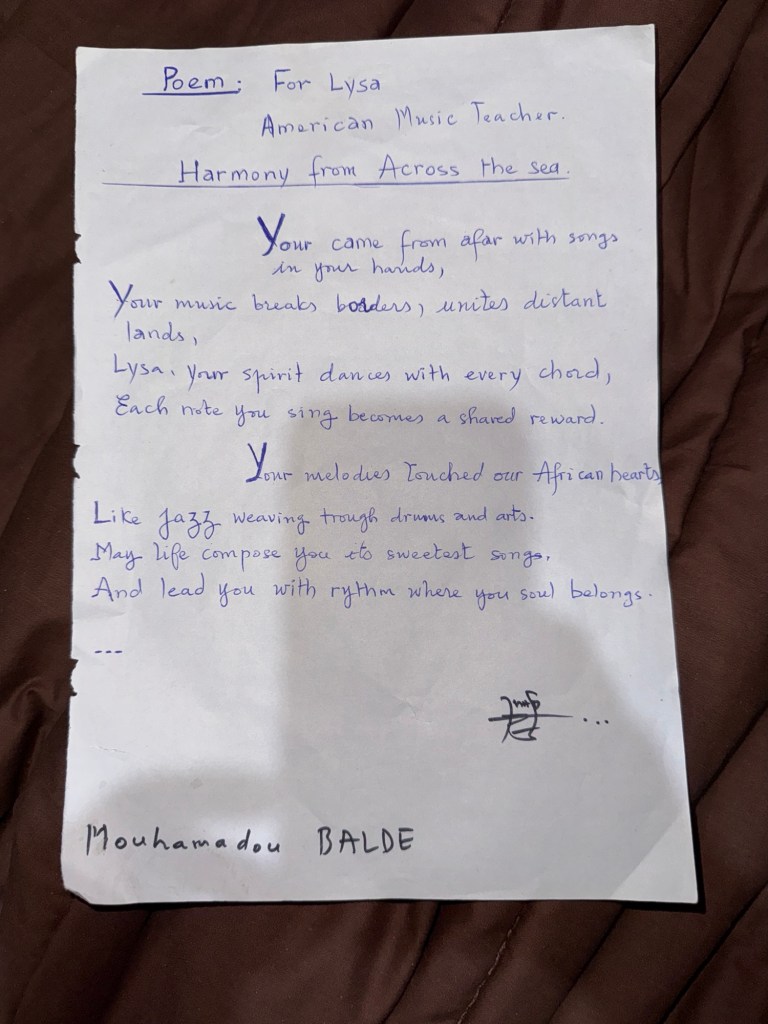 Poem: For Lysa
American Music Teacher.
Harmony from Across the sea.
Your came from afar with songs
in your hands,
Your music breaks borders, unites distant
lands,
Lysa, your spirit dances with every chord,
Each note you sing becomes a shared reward.
Your melodies touched our African hearts
Like Jazz weaving trough drums and arts.
May life compose you its sweetest songs,
And lead you with rythm where you soul belongs.
---
...
Mouhamadou BALDE